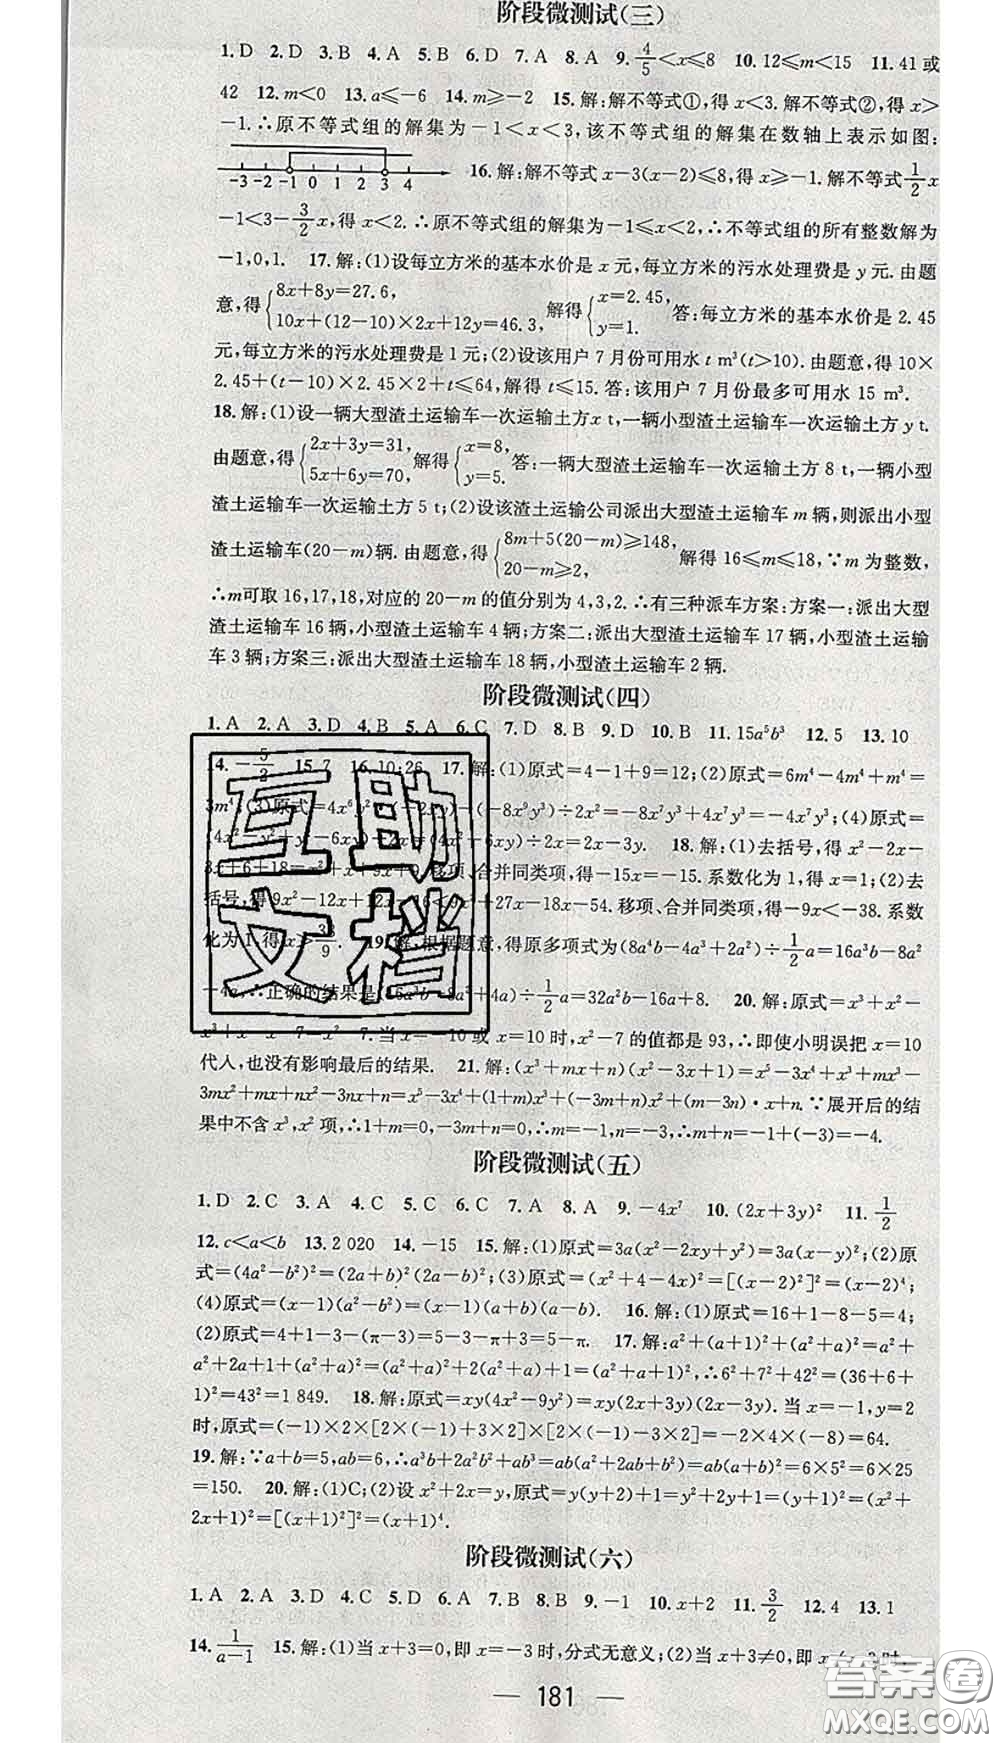 阶段微测试(三)
1. D 2. D 3. B 4. A 5. B 6. D 7. A 8. A 9. 4/5<x⩽8 10. 12⩽m<15 11. 41 或
42 12. m<0 13. a⩽-6 14. m⩾-2 15. 解:解不等式①,得 x<3. 解不等式②,得 x>
-1. ∴原不等式组的解集为-1<x<3,该不等式组的解集在数轴上表示如图:
-3 -2 -1 0 1 2 3 4 16. 解:解不等式 x-3(x-2)⩽8,得 x⩾-1. 解不等式 1/2 x
-1<3-3/2 x,得 x<2. ∴原不等式组的解集为-1⩽x<2,∴不等式组的所有整数解为
-1,0,1. 17. 解:(1)设每立方米的基本水价是 x 元,每立方米的污水处理费是 y 元. 由题
意,得{8x+8y=27.6, 10x+(12-10)×2x+12y=46.3, 解得{x=2.45, y=1. 答:每立方米的基本水价是 2.45
元,每立方米的污水处理费是 1 元;(2)设该用户 7 月份可用水 t m³(t>10). 由题意,得 10×
2.45+(t-10)×2.45×2+t⩽64,解得 t⩽15. 答:该用户 7 月份最多可用水 15 m³.
18. 解:(1)设一辆大型渣土运输车一次运输土方 x t,一辆小型渣土运输车一次运输土方 y t.
由题意,得{2x+3y=31, 5x+6y=70, 解得{x=8, y=5. 答:一辆大型渣土运输车一次运输土方 8 t,一辆小型
渣土运输车一次运输土方 5 t;(2)设该渣土运输公司派出大型渣土运输车 m 辆,则派出小型
渣土运输车(20-m)辆. 由题意,得{8m+5(20-m)⩾148, 20-m⩾2, 解得 16⩽m⩽18,∵m 为整数,
∴m可取 16,17,18,对应的 20-m 的值分别为 4,3,2. ∴有三种派车方案:方案一:派出大型
渣土运输车 16 辆,小型渣土运输车 4 辆;方案二:派出大型渣土运输车 17 辆,小型渣土运输
车 3 辆;方案三:派出大型渣土运输车 18 辆,小型渣土运输车 2 辆.
阶段微测试(四)
1. A 2. A 3. D 4. B 5. A 6. C 7. D 8. B 9. D 10. B 11. 15a⁵b³ 12. 5 13. 10
14. -5/2 15. 7 16. 10;26 17. 解:(1)原式=4-1+9=12;(2)原式=6m⁴-4m⁴+m⁴=
3m⁴;(3)原式=4x⁶y²·(-2xy)-(-8x⁹y³)÷2x²=-8x⁷y³+4x⁷y³=-4x⁷y³;(4)原式=
(4x²-y²+y²-6xy)÷2x=(4x²-6xy)÷2x=2x-3y. 18. 解:(1)去括号,得 x²-2x-
3x+6+18=x²+x+9x+9. 移项、合并同类项,得-15x=-15. 系数化为 1,得 x=1;(2)去
括号,得 9x²-12x+12x-16<9x²+27x-18x-54. 移项、合并同类项,得-9x<-38. 系数
化为 1,得 x>38/9. 19. 解:根据题意,得原多项式为(8a⁴b-4a³+2a²)÷1/2 a=16a³b-8a²
+4a,∴正确的结果是(16a³b-8a²+4a)÷1/2 a=32a²b-16a+8. 20. 解:原式=x³+x²-
x³+x 7-x² 7. 当 x=-10 或 x=10 时,x²-7 的值都是 93,∴即使小明误把 x=10
代人,也没有影响最后的结果. 21. 解:(x³+mx+n)(x²-3x+1)=x⁵-3x⁴+x³+mx³-
3mx²+mx+nx²-3nx+n=x⁵-3x⁴+(1+m)x³+(-3m+n)x²+(m-3n)·x+n. ∵展开后的结
果中不含 x³,x² 项,∴1+m=0,-3m+n=0,∴m=-1,n=-3,∴m+n=-1+(-3)=-4.
阶段微测试(五)
1. D 2. C 3. A 4. C 5. C 6. C 7. A 8. A 9. -4x⁷ 10. (2x+3y)² 11. 1/2
12. c<a<b 13. 2 020 14. -15 15. 解:(1)原式=3a(x²-2xy+y²)=3a(x-y)²;(2)原
式=(4a²-b²)²=(2a+b)²(2a-b)²;(3)原式=(x²+4-4x)²=[(x-2)²]²=(x-2)⁴;
(4)原式=(x-1)(a²-b²)=(x-1)(a+b)(a-b). 16. 解:(1)原式=16+1-8-5=4;
(2)原式=4+1-3-(π-3)=5-3-π+3=5-π. 17. 解:a²+(a+1)²+(a²+a)²=a²+
a²+2a+1+(a²+a)²=(a²+a)²+2(a²+a)+1=(a²+a+1)²,∴6²+7²+42²=(36+6+
1)²=43²=1 849. 18. 解:原式=xy(4x²-9y²)=xy(2x+3y)(2x-3y). 当 x=-1,y=2
时,原式=(-1)×2×[2×(-1)+3×2]×[2×(-1)-3×2]=-2×4×(-8)=64.
19. 解:∵a+b=5,ab=6,∴a³b+2a²b²+ab³=ab(a²+2ab+b²)=ab(a+b)²=6×5²=6×25
=150. 20. 解:(1)C;(2)设 x²+2x=y,原式=y(y+2)+1=y²+2y+1=(y+1)²=(x²+
2x+1)²=[(x+1)²]²=(x+1)⁴.
阶段微测试(六)
1. A 2. A 3. D 4. C 5. D 6. A 7. B 8. B 9. -1 10. x+2 11. 3/2 12. 4 13. 1
14. 1/(a-1) 15. 解:(1)当 x+3=0,即 x=-3 时,分式无意义;(2)当 x+3≠0,即 x≠-3 时,
— 181 —
互助
文档
答案圈
MXQE.COM